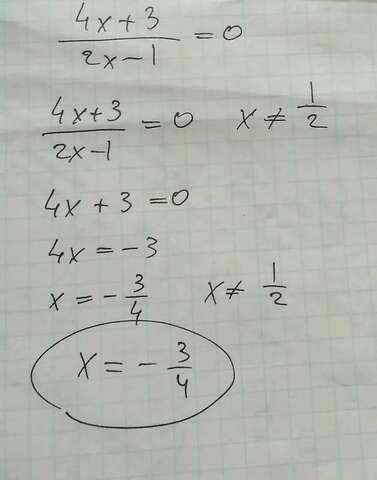 4x+3/2x-1 = 0
4x+3/2x-1 = 0 x ≠ 1/2
4x + 3 = 0
4x = -3
x = - 3/4 x ≠ 1/2
x = - 3/4